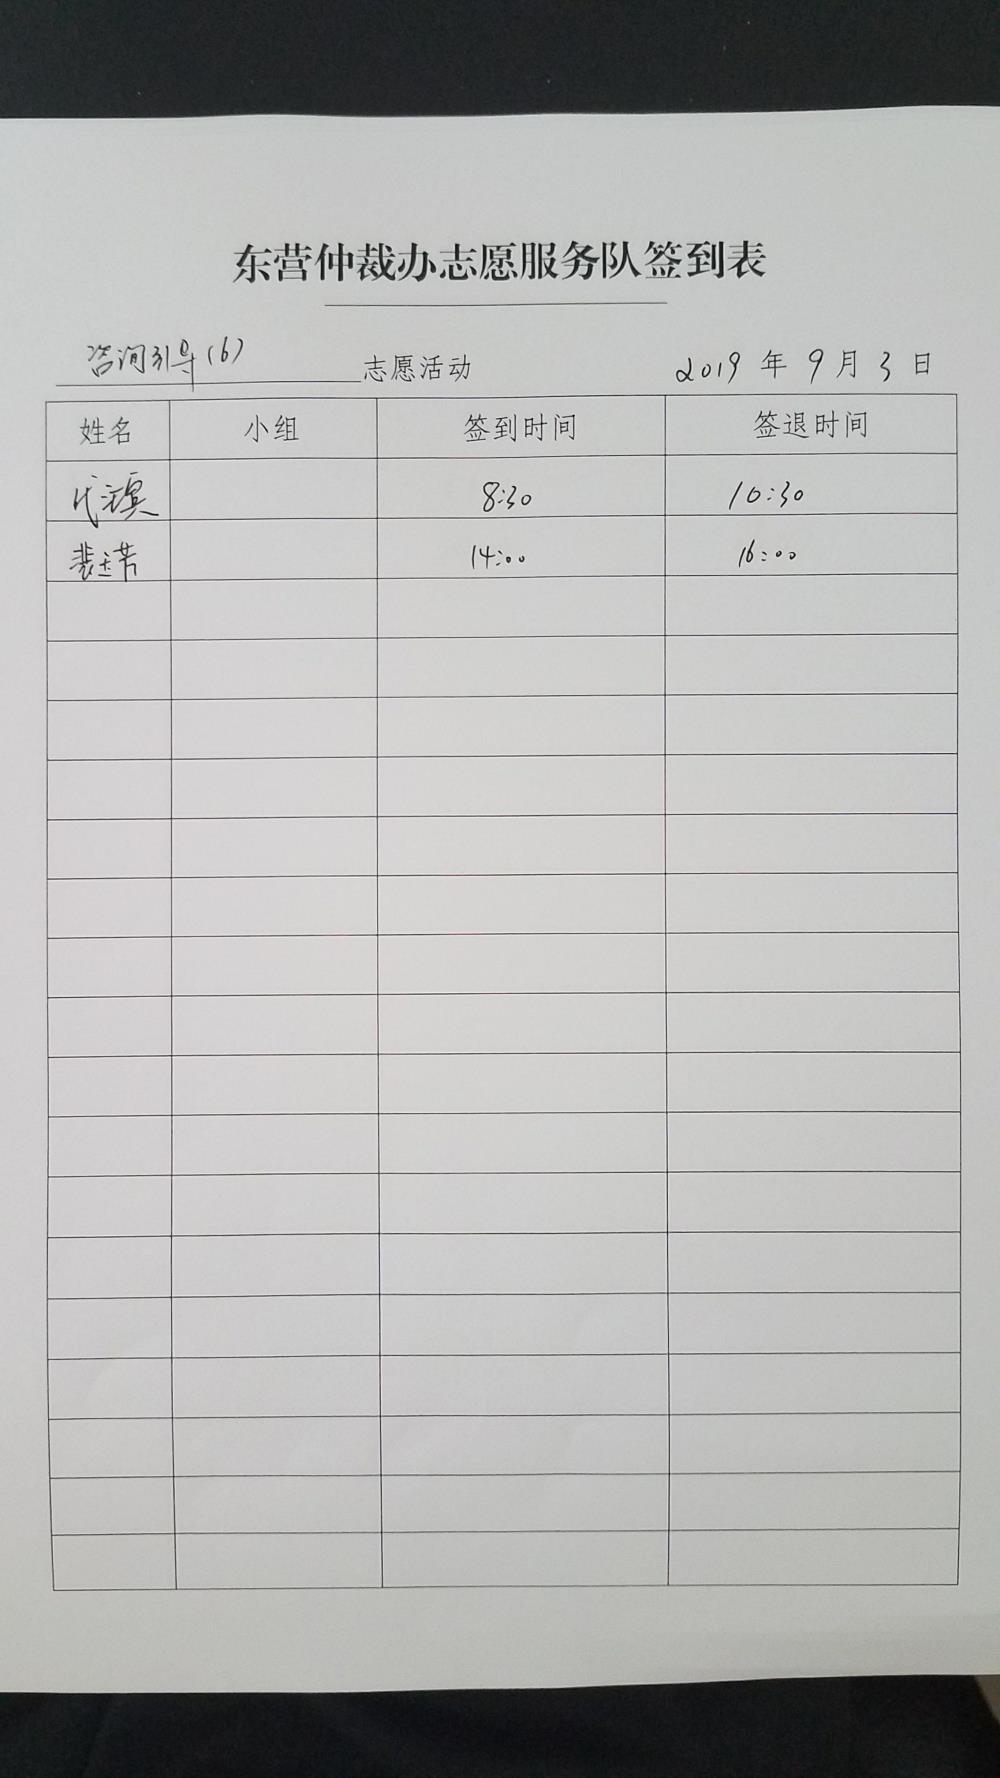 东营仲裁办志愿服务队签到表
咨询引导(6) 志愿活动 2019 年 9 月 3 日
姓名 小组 签到时间 签退时间
8:30 10:30
14:00 16:00